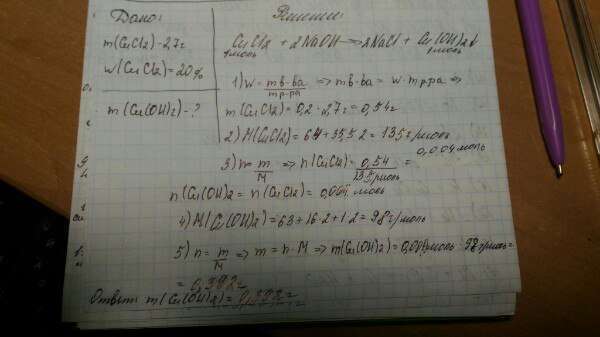 Дано:
m(CuCl2)=27г
w(CuCl2)=20%
m(Cu(OH)2)-?
Решение:
CuCl2 + 2NaOH → 2NaCl + Cu(OH)2↓
1моль 1моль
1) w = mв-ва/mр-ра => mв-ва = w · mр-ра =>
m(CuCl2)=0,2 · 2,7г=0,54г
2) M(CuCl2)=64+35,5·2=135г/моль
3) n=m/M => n(CuCl2)=0,54/135г/моль = 0,004моль
n(Cu(OH)2=n(CuCl2)=0,004 моль
4) M(Cu(OH)2)=63+16·2+1·2=98г/моль
5) n=m/M => m=n·M => m(Cu(OH)2)=0,004моль·98г/моль=
=0,392г
Ответ: m(Cu(OH)2)=0,392г